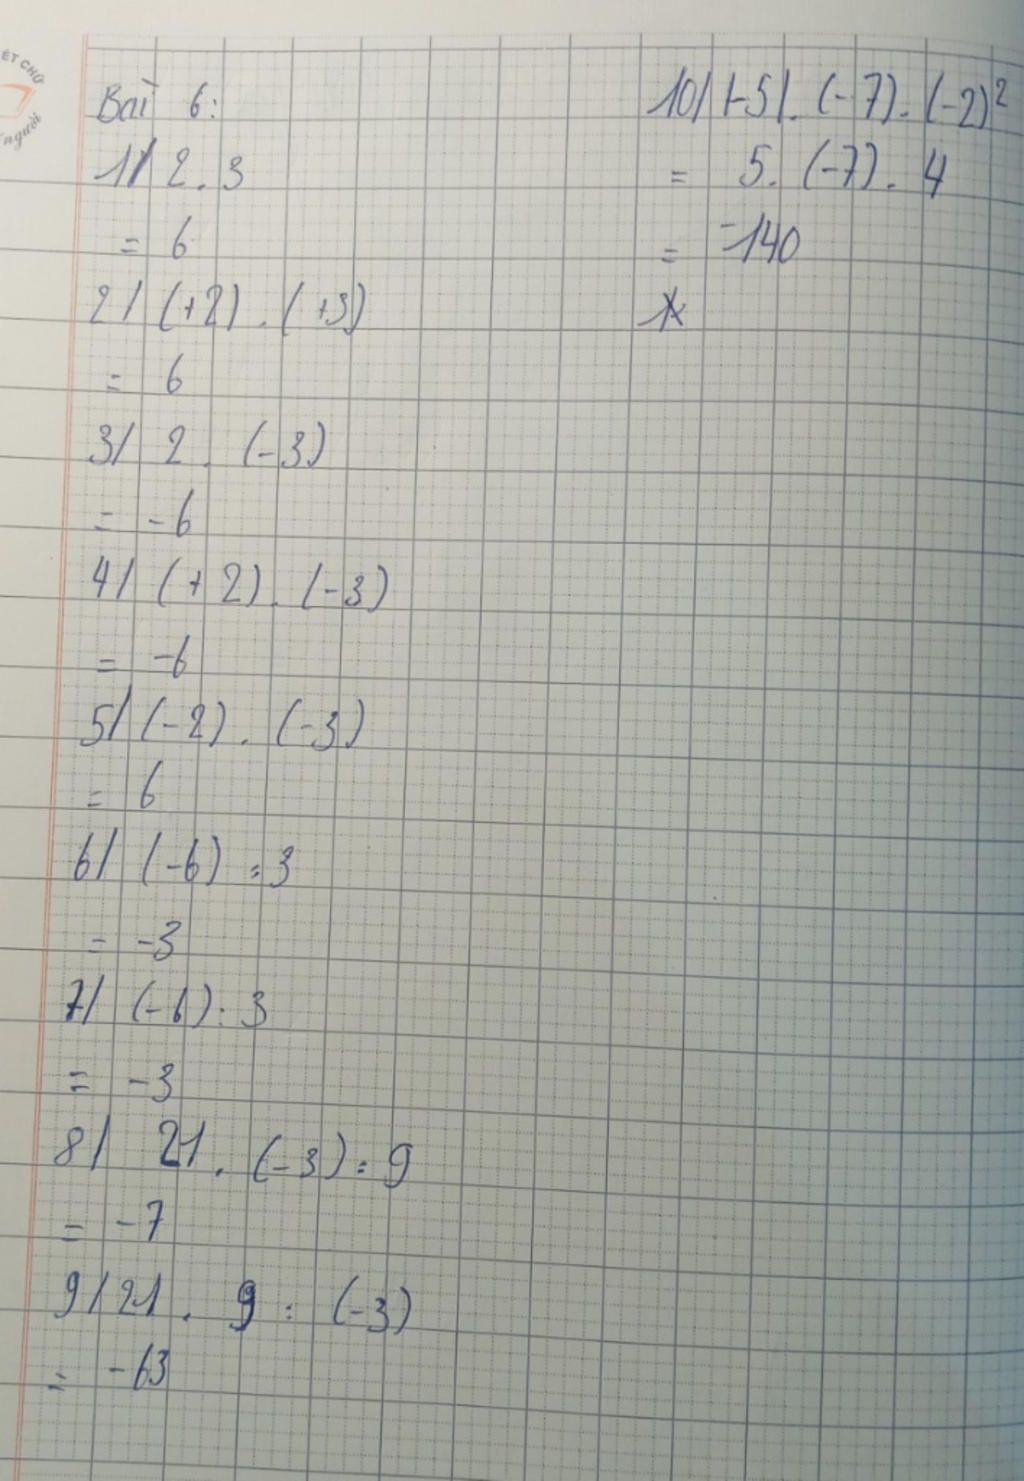 ÉT CHỮ
người
Bài 6:
1/ 2 . 3
= 6
2/ (+2) . (+3)
= 6
3/ 2 . (-3)
= -6
4/ (+2) . (-3)
= -6
5/ (-2) . (-3)
= 6
6/ (-6) : 3
= -3
7/ (-6) : 3
= -3
8/ 21 . (-3) : 9
= -7
9/ 21 . 9 : (-3)
= -63
10/ |-5| . (-7) . (-2)²
= 5 . (-7) . 4
= -140